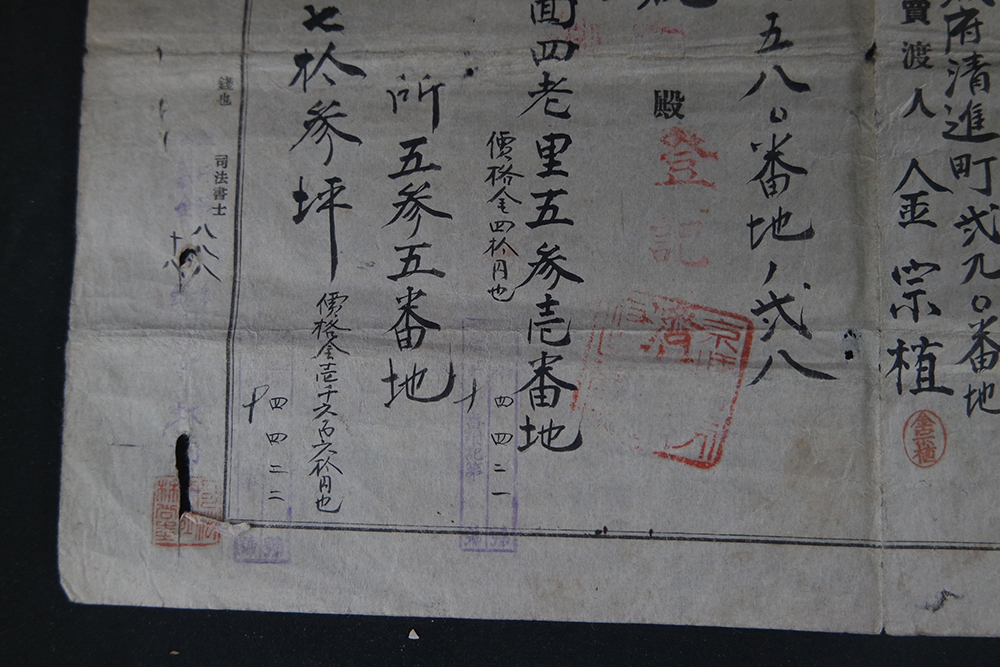 府清進町弐九〇番地
賣渡人 金宗植
五八〇番地ノ弐八
殿
登記
濟
面四老里五参壱番地
價格金四拾円也
四四二一
所五参五番地
七拾参坪
價格金壱千六百六拾円也
四四二二
錢也
司法書士